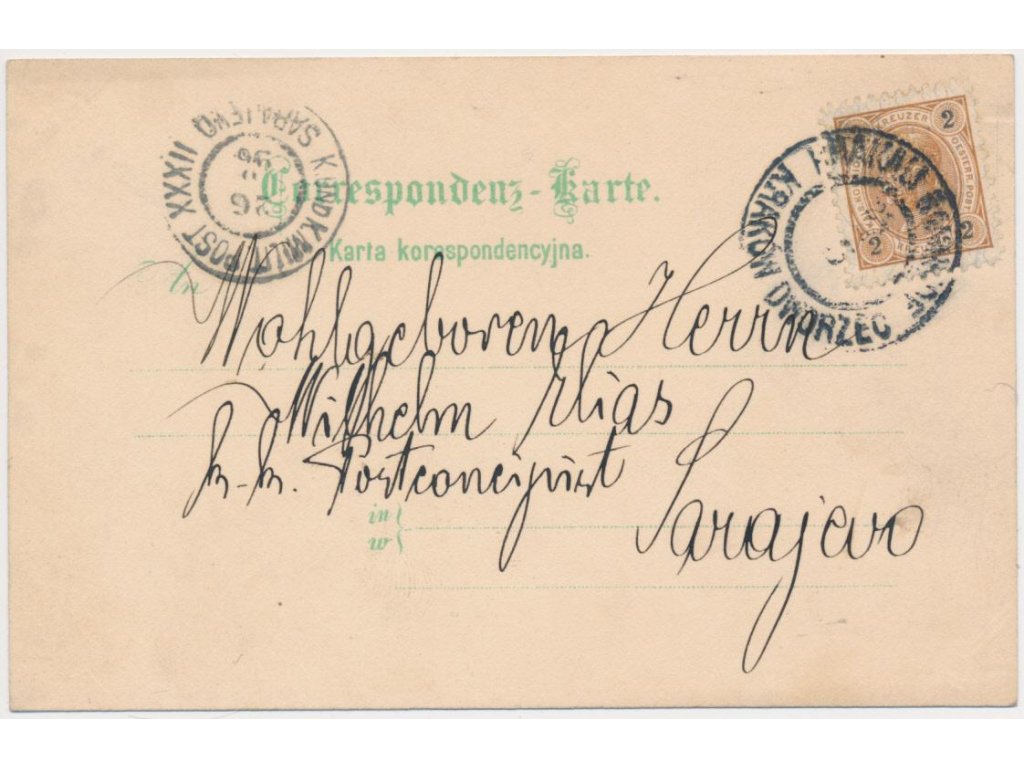 Correspondenz-Karte.
Karta korespondencyjna.
An
Wohlgeboren Herrn
Wilhelm Elias
k. k. Postconcipist
in
w
Sarajevo
K. UND K. MILIT. POST XXXII
SARAJEVO
26
98
KRAKAU
KRAKÓW DWORZEC
2 KREUZER 2
OESTERR. POST
2 2